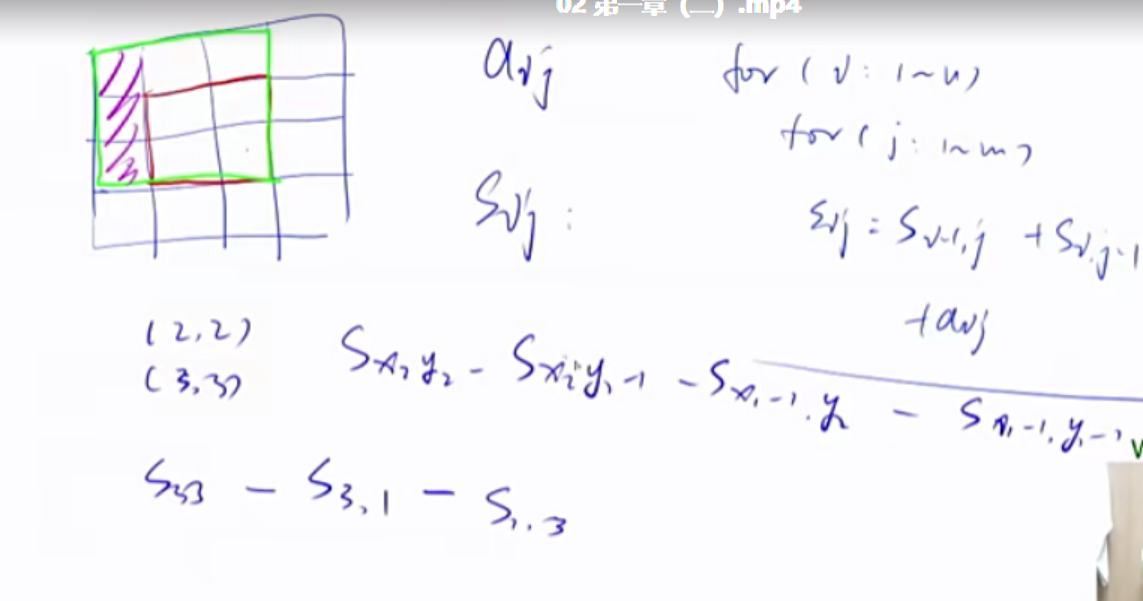 02 第一章 (二) .mp4
aij
for ( i : 1~n )
for ( j : 1~m )
Sij :
Sij = Si-1,j + Si,j-1
+ aij
(2,2)
(3,3)
Sx2y2 - Sx2y1-1 - Sx1-1,y2 - Sx1-1,y1-1
S33 - S3,1 - S1,3